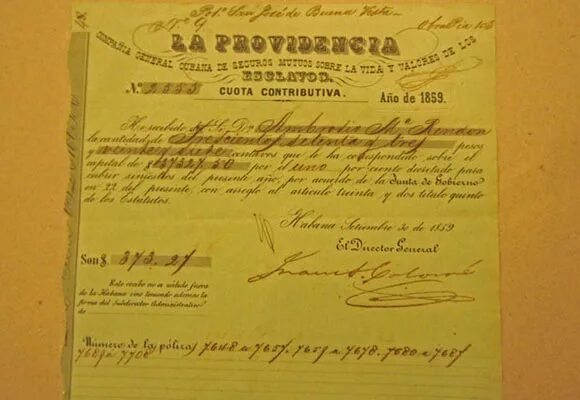 Pot. San José de Buena Vista
Nº 9
LA PROVIDENCIA
COMPAÑIA GENERAL CUBANA DE SEGUROS MUTUOS SOBRE LA VIDA Y VALORES DE LOS
ESCLAVOS.
N.º 2353
CUOTA CONTRIBUTIVA.
Año de 1859.
He recibido del Sr. D. Ambrosio Mª Rendon
la cantidad de trescientos setenta y tres pesos
veinte y siete centavos que le ha correspondido sobre el
capital de $37327.50 por el uno por ciento decretado para
cubrir siniestros del presente año, por acuerdo de la Junta de Gobierno
en 22 del presente, con arreglo al articulo treinta y dos titulo quinto
de los Estatutos.
Habana Setiembre 30 de 1859
El Director General
Son $ 373.27
Este recibo no es válido fuera
de la Habana sino teniendo ademas la
firma del Subdirector Administrativo
de
Número de la póliza 7648 a 7657. 7659 a 7678. 7680 a 7687
7689 a 7708